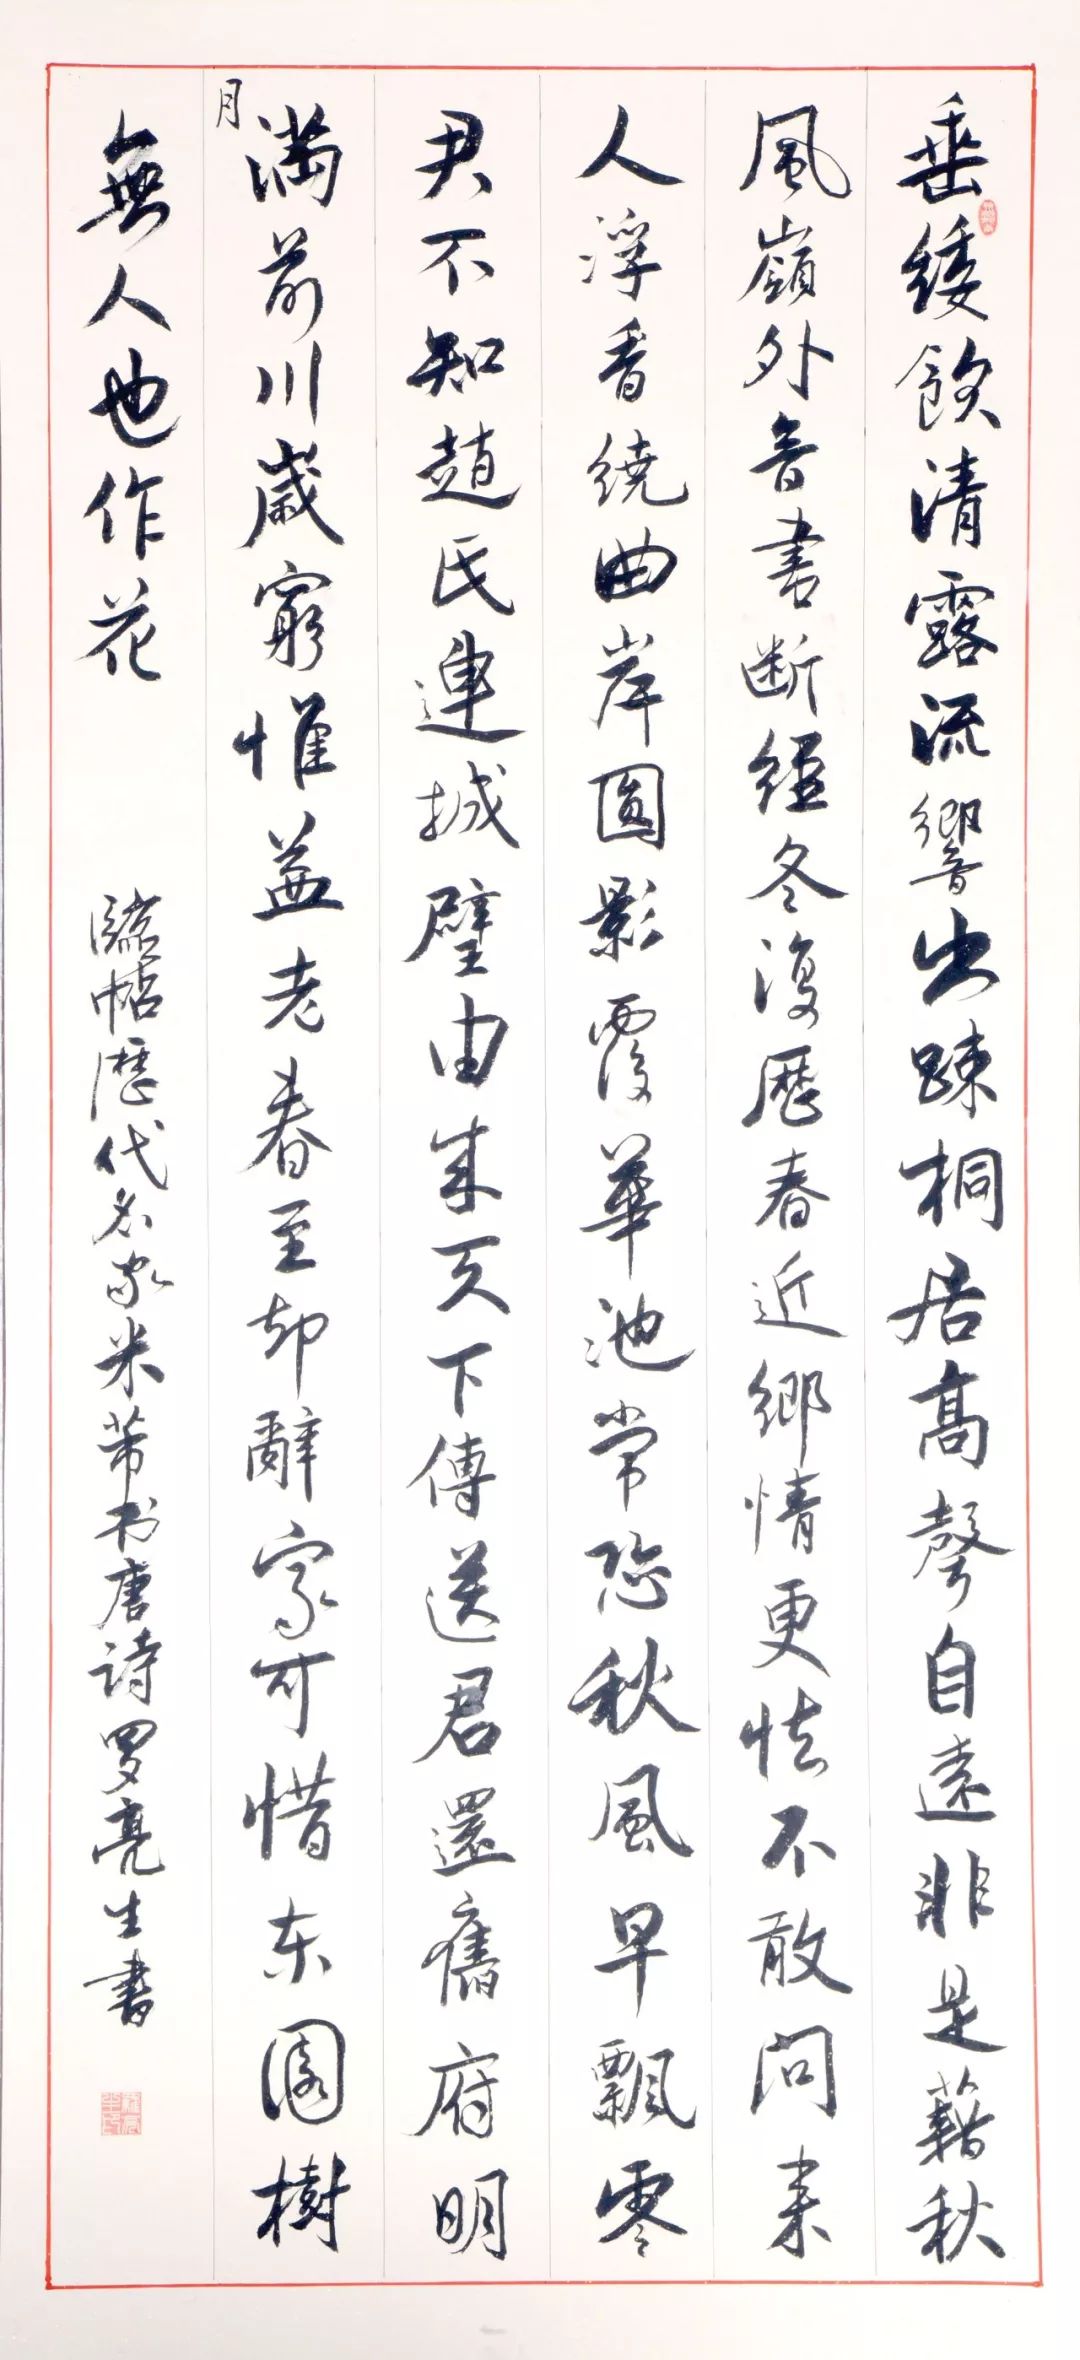 垂緌飲清露流響出踈桐居高聲自遠非是藉秋
風嶺外音書断經冬復歷春近鄉情更怯不敢問来
人浮香繞曲岸圓影覆華池常恐秋風早飄零
君不知趙氏連城璧由来天下傳送君還舊府明
月
滿前川歲窮惟益老春至却辭家可惜东園樹
無人也作花
臨帖歷代名家米芾书唐诗罗亮生書